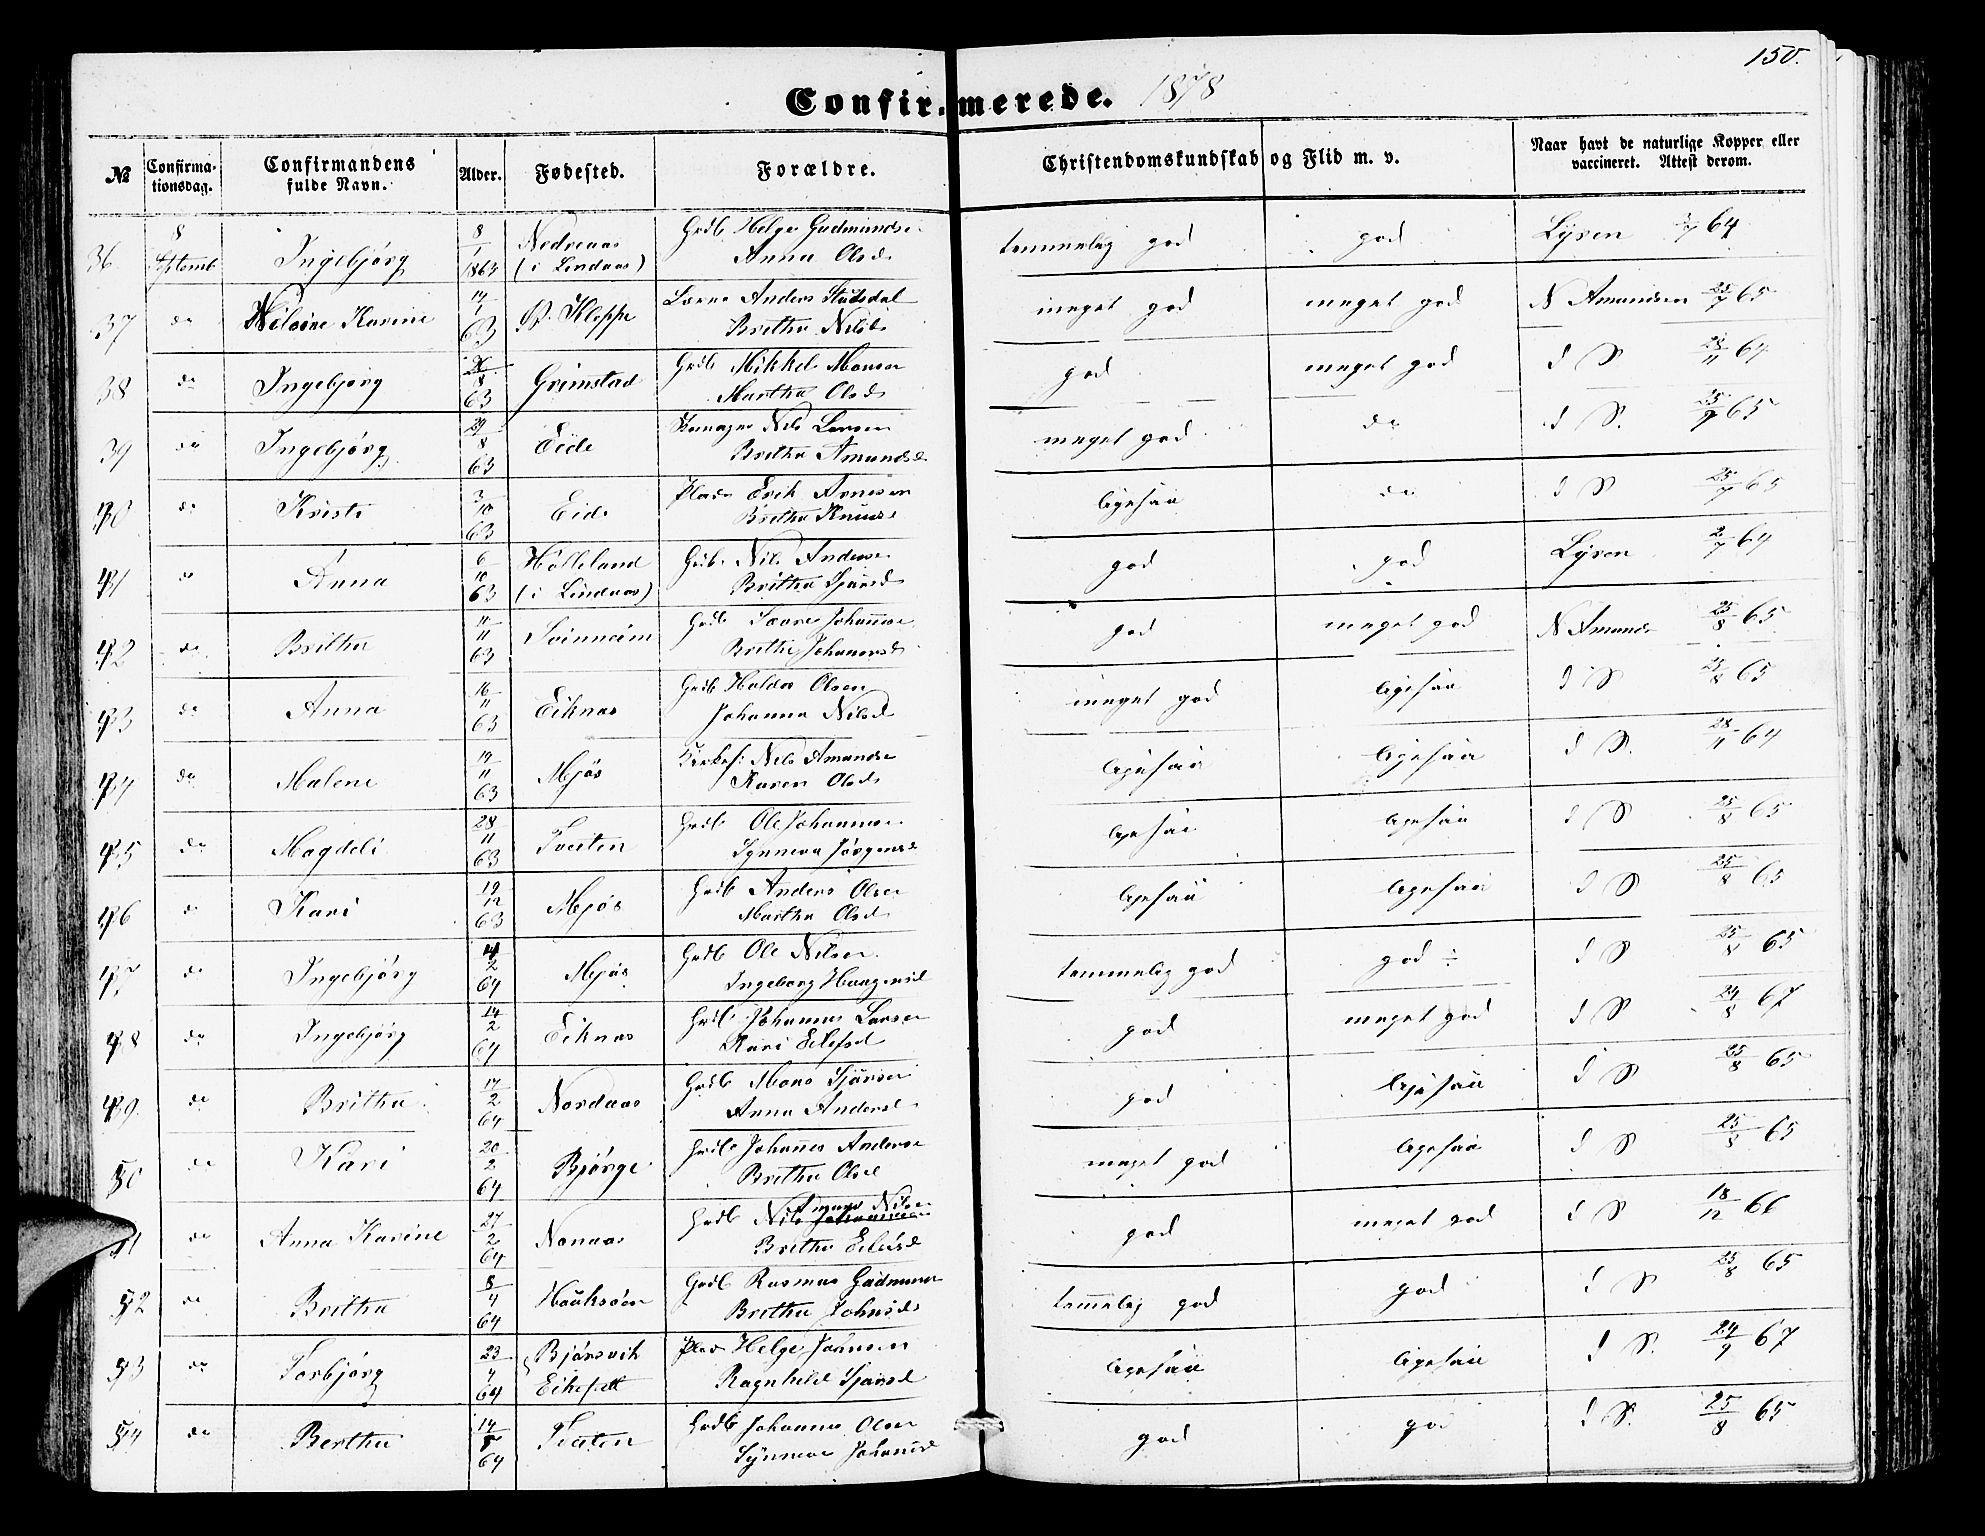 150.
Confirmerede. 1878
№ Confirmationsdag. Confirmandens fulde Navn. Alder. Fødested. Forældre. Christendomskundskab og Flid m. v. Naar havt de naturlige Kopper eller vaccineret. Attest derom.
36 8 Septemb Ingebjörg 8/1 1863 Nedreaas (i Lindaas) Grdb Helge Gudmundse Anna Olsd temmelig god god Lÿren 64
37 do Karine 63 Kleppe Anders Stusdal Britha Nilsd meget god meget god N Amundsen 25/7 65
38 do Ingebjørg 26/8 63 Grimstad Grdb Mikkel Monsen Martha Olsd god meget god d S 28/11 64
39 do Ingebjörg 29/8 63 Eide Nils Larsen Britha Amundsd meget god do d S. 25/7 65
40 do Kristi 3/10 63 Eide Plads Erik Arnesen Britha Knudsd ligesaa do d S 25/7 65
41 do Anna 6/10 63 Hölleland (i Lindaas) Grdb Nils Anderse Britha Sjursd god god Lÿren 2/7 64
42 do Britha 11/11 63 Grdb Johannse Brithe Johannesd god meget god N Amunds 25/8 65
43 do Anna 16/11 63 Eiknes Grdb Haldor Olsen Johanna Nilsd meget god ligesaa d S 25/8 65
44 do Malene 63 Mjös Kirkes: Nils Amundse Karen Olsd ligesaa ligesaa d S. 28/11 64
45 do Magdeli 28/11 63 Tveiten Grdb Ole Johannese Synneva Jörgensd ligesaa ligesaa d S 25/8 65
46 do Kari 19/12 63 Mjös Grdb Anders Olsen Martha Olsd ligesaa ligesaa d S 25/8 65
47 do Ingebjörg 2 64 Mjös Grdb Ole Nilsen Ingeborg Haagensd temmelig god god ÷ d S 25/8 65
48 do Ingebjörg 14/2 64 Eiknes Grdb Johannes Larsen Kari Eilefsd god meget god d S 24/8 67
49. do Britha 17/2 64 Nordaas Grdb Mons Sjursen Anna Andersd god ligesaa d S 25/8 65
50 do Kari 20/2 64 Bjørge Grdb Johannes Anderse Britha Olsd meget god ligesaa d S 25/8 65
51 do Anna Karine 27/2 64 Nonaas Grdb Nils Johannesen Amund Nilse Britha god meget god d S 18/12 66
52 do Britha 8/4 64 Grdb Rasmus Gudmunds Britha Johnsd temmelig god god d S 25/8 65
53 do Torbjörg 23/4 64 Bjørsvik Eikefett Plads Helge Johnsen Ragnhild Sjursd ligesaa ligesaa d S. 24/9 67
54 do Berthe 64 Tveiten Grdb Johannes Olsen Synneve god god d S. 25/8 65